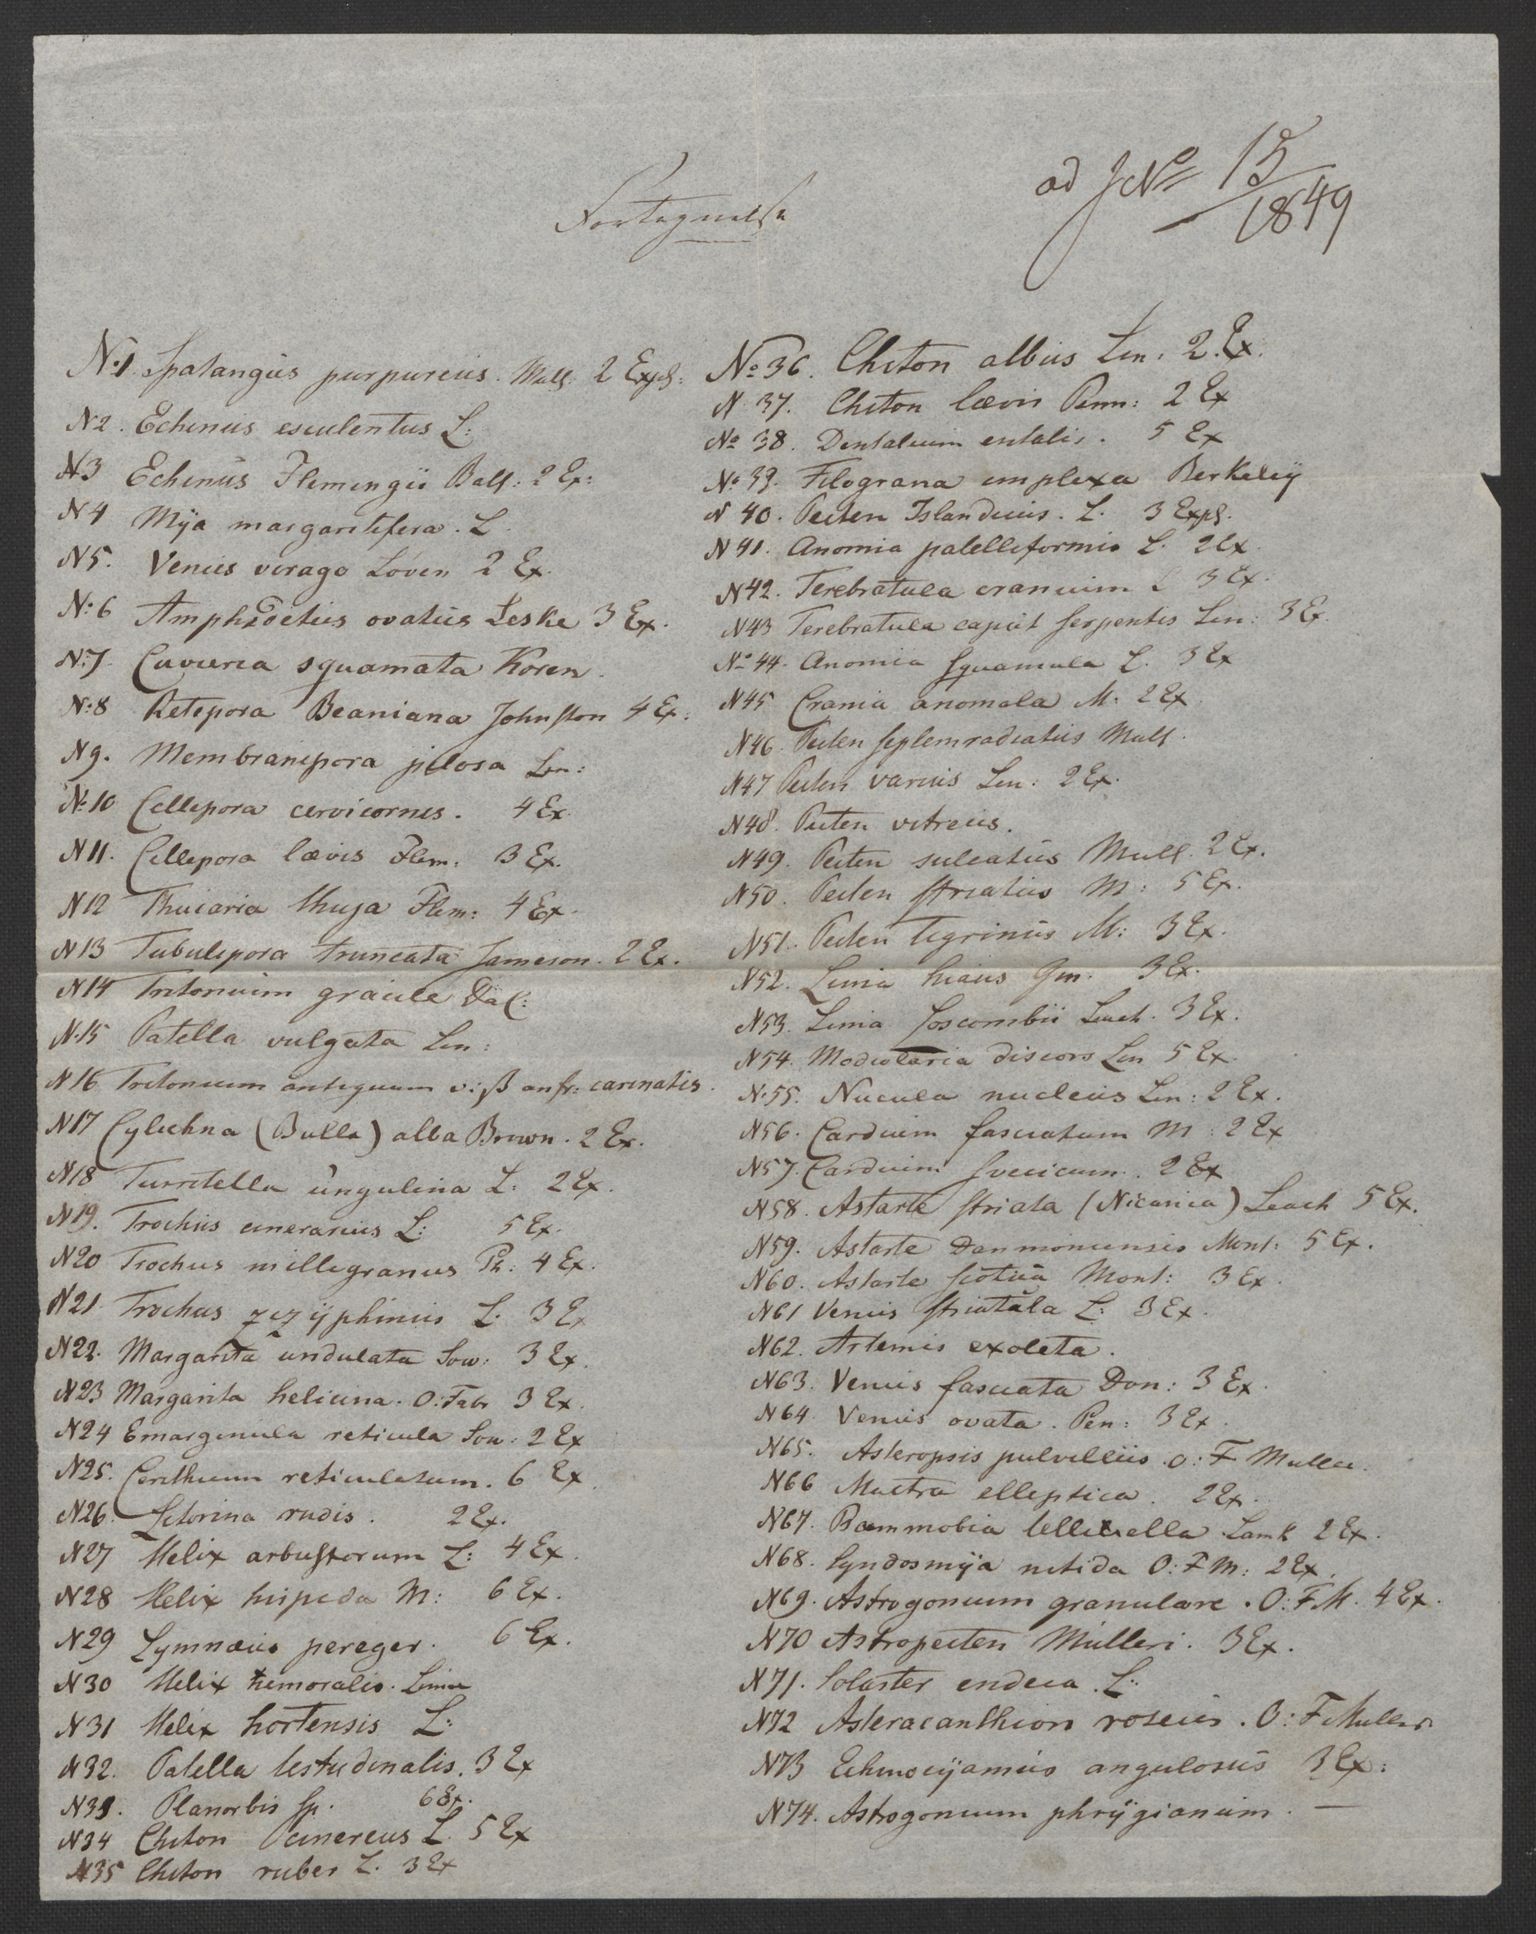 ad J No 15/1849
Fortegnelse
N.1 Spatangus purpureus. Mull: 2 Expl:
N2. Echinus esculentus L:
N3 Echinus Flemingii Ball: 2 Ex:
N4 Mÿa margaritifera. L
N5. Venus virago Lóven 2 Ex.
N:6 Amphidetus ovatus Leske 3 Ex.
N:7 Cuvieria squamata Koren.
N:8 Retepora Beaniana Johnston 4 Ex:
N9. Membranipora pilosa Lin:
N:10 Cellepora cervicornis. 4 Ex
N11. Cellepora lævis Flem: 3 Ex.
N12 Thuiaria thuja Flem: 4 Ex.
N13 Tubulipora truncata Jameson. 2 Ex.
N14 Tritonium gracile
N.15 Patella vulgata Lin:
N16 Tritonium antiquum v: ß anfr: carinatis.
N17 Cylichna (Bulla) alba Brown. 2 Ex.
N18 Turritella ungulina L: 2 Ex.
N19. Trochus cinerarius L: 5 Ex.
N20 Trochus millegranus Ph: 4 Ex.
N21 Trochus zizÿphinus L. 3 Ex
N22. Margarita undulata Sow: 3 Ex.
N23 Margarita helicina. O: Fabr 3 Ex.
N24 Emarginula reticula Sow: 2 Ex
N25. Cerithium reticulatum. 6 Ex.
N26. Litorina rudis. 2 Ex.
N27 Helix arbustorum L: 4 Ex.
N28 Helix hispida M: 6 Ex.
N29 Lymnæus pereger. 6 Ex.
N30 Helix nemoralis. Linne
N31 Helix hortensis L:
N32. Patella testudinalis. 3 Ex
N33. Planorbis sp. 6 Ex.
N34 Chiton cinereus L. 5 Ex
N35 Chiton ruber L. 3 Ex
No 36. Chiton albus Lin. 2. Ex.
N 37. Chiton lævis Penn: 2 Ex
No 38. Dentalium entalis. 5 Ex
No 39. Filograna implexa Berkeleÿ
N 40. Pecten Islandicus. L. 3 Expl.
N 41. Anomia patelliformis L. 2 Ex.
N42. Terebratula cranium L 3 Ex.
N43 Terebratula caput serpentis Lin: 3 Ex
No 44. Anomia squamula L. 3 Ex
N45 Crania anomala M. 2 Ex
N46. Pecten septemradiatus Mull.
N47 Pecten varius Lin: 2 Ex.
N48. Pecten vitreus.
N49. Pecten sulcatus Mull. 2 Ex.
N50. Pecten striatus M: 5 Ex.
N51. Pecten tigrinus M: 3 Ex.
N52. Lima hians Gm. 3 Ex.
N53. Lima Loscombii Leach. 3 Ex.
N54. Modiolaria discors Lin 5 Ex.
N.55. Nucula nucleus Lin: 2 Ex.
N56. Cardium fasciatum M: 2 Ex
N57. Cardium svecicum. 2 Ex
N58. Astarte striata (Nicania) Leach 5 Ex.
N59. Astarte Danmoniensis Mont: 5 Ex.
N60. Astarte scotica Mont: 3 Ex.
N61 Venus striatula L: 3 Ex.
N62. Artemis exoleta.
N63. Venus fasciata Don: 3 Ex.
N64 Venus ovata. Pen: 3 Ex.
N65. Asteropsis pulvillus. O: F Muller.
N66 Mactra elleptica. 2 Ex.
N67. Psammobia tellinella Lamk 2 Ex.
N68. Syndosmÿa nitida O: F M: 2 Ex.
N69. Astrogonium granulare. O: F.M. 4 Ex.
N70 Astropecten Mulleri. 3 Ex.
N71. Solaster endeca. L:
N72 Asteracanthion roseus. O: F Muller
N73 Echinocÿamus angulosus 3 Ex:
N74. Astrogonium phrÿgianum. —